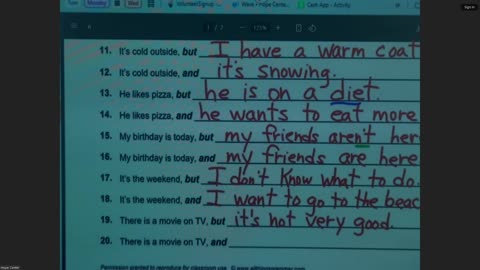 Tue Monday Wed VolunteerSignup Wave • Hope Cente... Cash App - Activity
Sign in
1 / 2 - 175% +
11. It's cold outside, but I have a warm coat
12. It's cold outside, and it's snowing.
13. He likes pizza, but he is on a diet.
14. He likes pizza, and he wants to eat more
15. My birthday is today, but my friends aren't here
16. My birthday is today, and my friends are here
17. It's the weekend, but I don't know what to do.
18. It's the weekend, and I want to go to the beac
19. There is a movie on TV, but it's not very good.
20. There is a movie on TV, and
Permission granted to reproduce for classroom use.